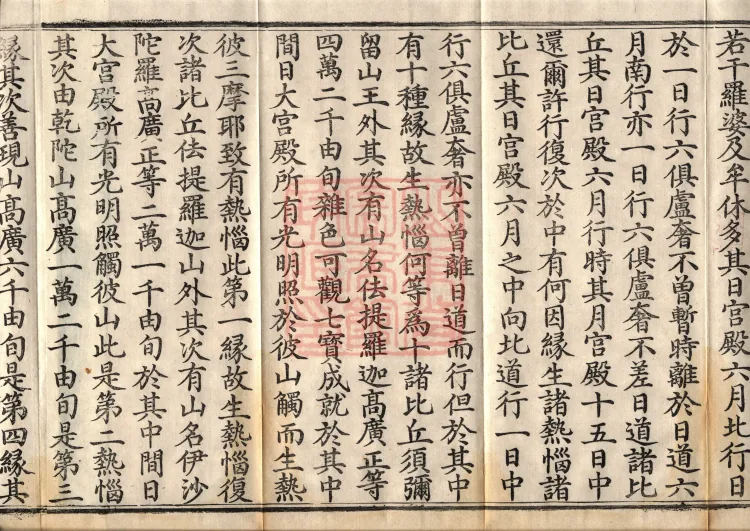 若干羅婆及牟休多其日宮殿六月北行日
於一日行六俱盧奢不曾暫時離於日道六
月南行亦一日行六俱盧奢不差日道諸比
丘其日宮殿六月行時其月宮殿十五日中
還爾許行復次於中有何因緣生諸熱惱諸
比丘其日宮殿六月之中向北道行一日中
行六俱盧奢亦不曾離日道而行但於其中
有十種緣故生熱惱何等爲十諸比丘須彌
留山王外其次有山名佉提羅迦高廣正等
四萬二千由旬雜色可觀七寶成就於其中
間日大宮殿所有光明照於彼山觸而生熱
彼三摩耶致有熱惱此第一緣故生熱惱復
次諸比丘佉提羅迦山外其次有山名伊沙
陀羅高廣正等二萬一千由旬於其中間日
大宮殿所有光明照觸彼山此是第二熱惱
其次由乾陀山高廣一萬二千由旬是第三
緣其次善現山高廣六千由旬是第四緣其